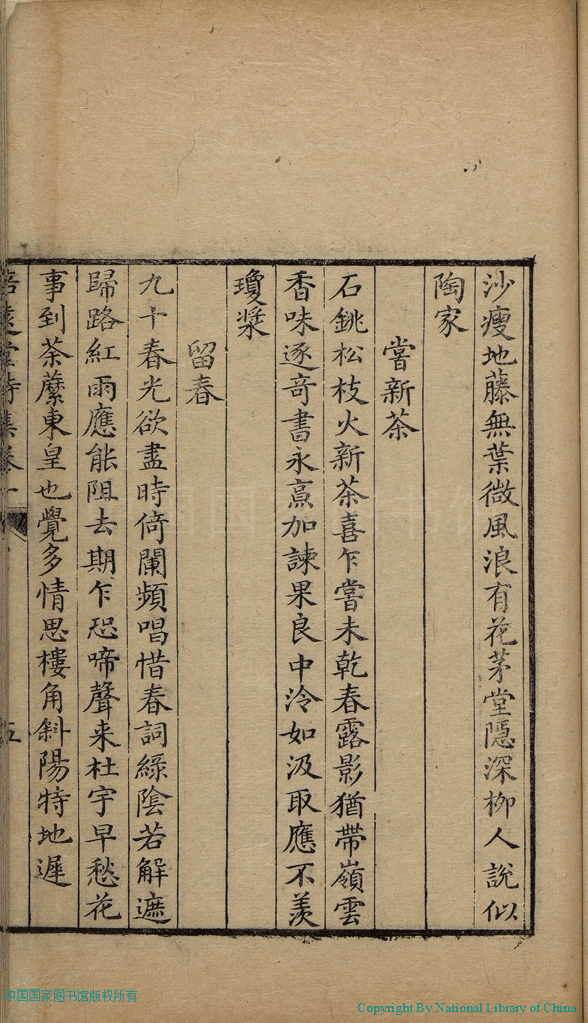 沙瘦地藤無葉微風浪有花茅堂隱深柳人說似
陶家
嘗新茶
石銚松枝火新茶喜乍嘗未乾春露影猶帶嶺雲
香味逐奇書永烹加諫果良中泠如汲取應不羨
瓊漿
留春
九十春光欲盡時倚闌頻唱惜春詞綠陰若解遮
歸路紅雨應能阻去期乍恐啼聲来杜宇早愁花
事到荼蘼東皇也覺多情思樓角斜陽特地遲
堂詩集卷一
五
中国国家图书馆版权所有
Copyright By National Library of China